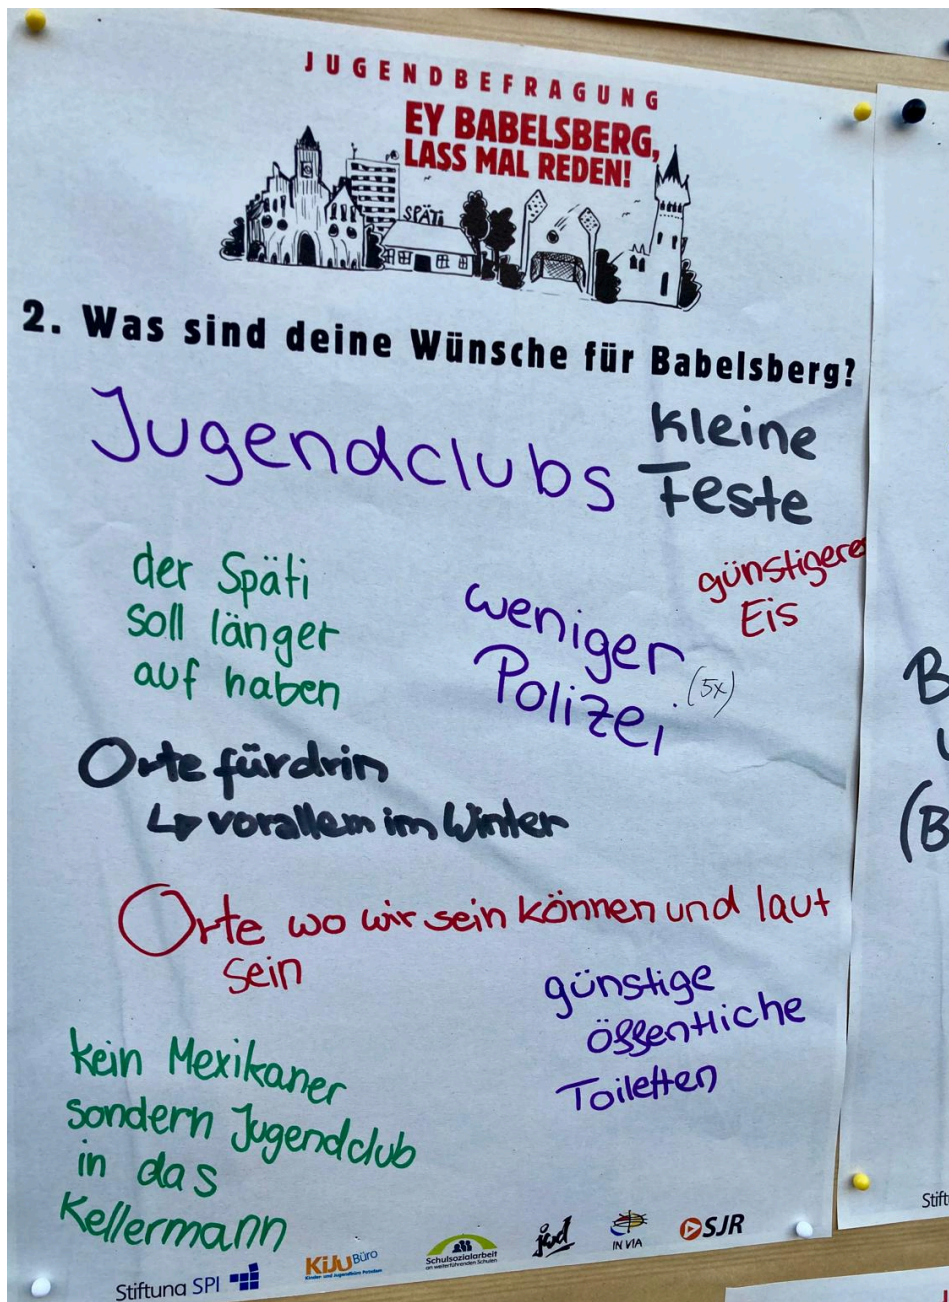 JUGENDBEFRAGUNG
EY BABELSBERG,
LASS MAL REDEN!
SPÄTI
2. Was sind deine Wünsche für Babelsberg?
Jugendclubs
kleine
Feste
der Späti
soll länger
auf haben
weniger
Polizei
(5x)
günstigeres
Eis
Orte für drin
↳ vorallem im Winter
Orte wo wir sein können und laut
sein
günstige
öffentliche
Toiletten
kein Mexikaner
sondern Jugendclub
in das
Kellermann
Stiftung SPI
KiJu Büro
Kinder- und Jugendbüro Potsdam
Schulsozialarbeit
an weiterführenden Schulen
jwd
IN VIA
SJR
B
(B
Stift